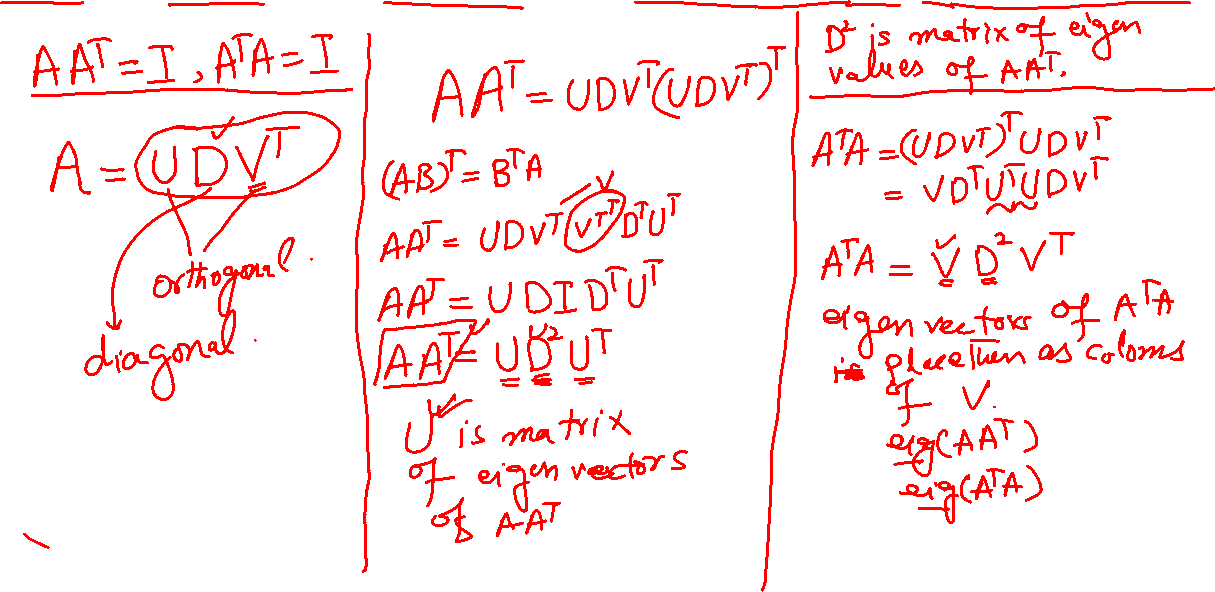 AAᵀ = I , AᵀA = I
A = U D Vᵀ
orthogonal.
diagonal.
AAᵀ = UDVᵀ(UDVᵀ)ᵀ
(AB)ᵀ = BᵀA
V
AAᵀ = UDVᵀ (Vᵀᵀ) DᵀUᵀ
AAᵀ = U D I DᵀUᵀ
AAᵀ = U D² Uᵀ
U is matrix
of eigen vectors
of AAᵀ
D² is matrix of eigen
values of AAᵀ.
AᵀA = (UDVᵀ)ᵀ UDVᵀ
= VDᵀUᵀUDVᵀ
AᵀA = V D² Vᵀ
eigen vectors of AᵀA
place then as coloms
of V.
eig(AAᵀ)
eig(AᵀA)